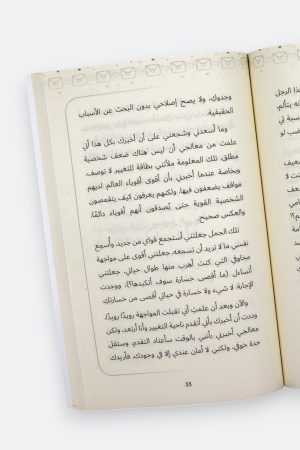 وجدوك، ولا يصح إصلاحي بدون البحث عن الأسباب
الحقيقية.
وما أسعدني وشجعني على أن أخبرك بكل هذا أني
علمت من معالجي أن ليس هناك ضعف شخصية
مطلق، تلك المعلومة ملأتني بطاقة للتغيير لا توصف،
وبخاصة عندما أخبرني بأن أقوى أقوياء العالم لديهم
مواقف يضعفون فيها، ولكنهم يعرفون كيف يتقمصون
الشخصية القوية حتى يُصدقون أنهم أقوياء دائمًا،
والعكس صحيح.
تلك الجمل جعلتني أستجمع قواي من جديد، وأُسمِع
نفسي ما لا تريد أن تسمعه، جعلتني أقوى على مواجهة
مخاوفي التي كنت أهرب منها طوال حياتي، جعلتني
أتساءل (ما أقصى خسارة سوف أتكبدها؟)، ووجدت
الإجابة: لا شيء ولا خسارة في حياتي أقصى من خسارتك.
والآن وبعد أن علمت أني تقبلت المواجهة رويدًا رويدًا،
وددت أن أخبرك بأني أتقدم ناحية التغيير وأنا أرتعد، ولكن
معالجي أخبرني بأنني بالوقت سأعتاد التقدم، وستقل
حدة خوفي، ولكني لا أمان عندي إلا في وجودك، وأريدك
55